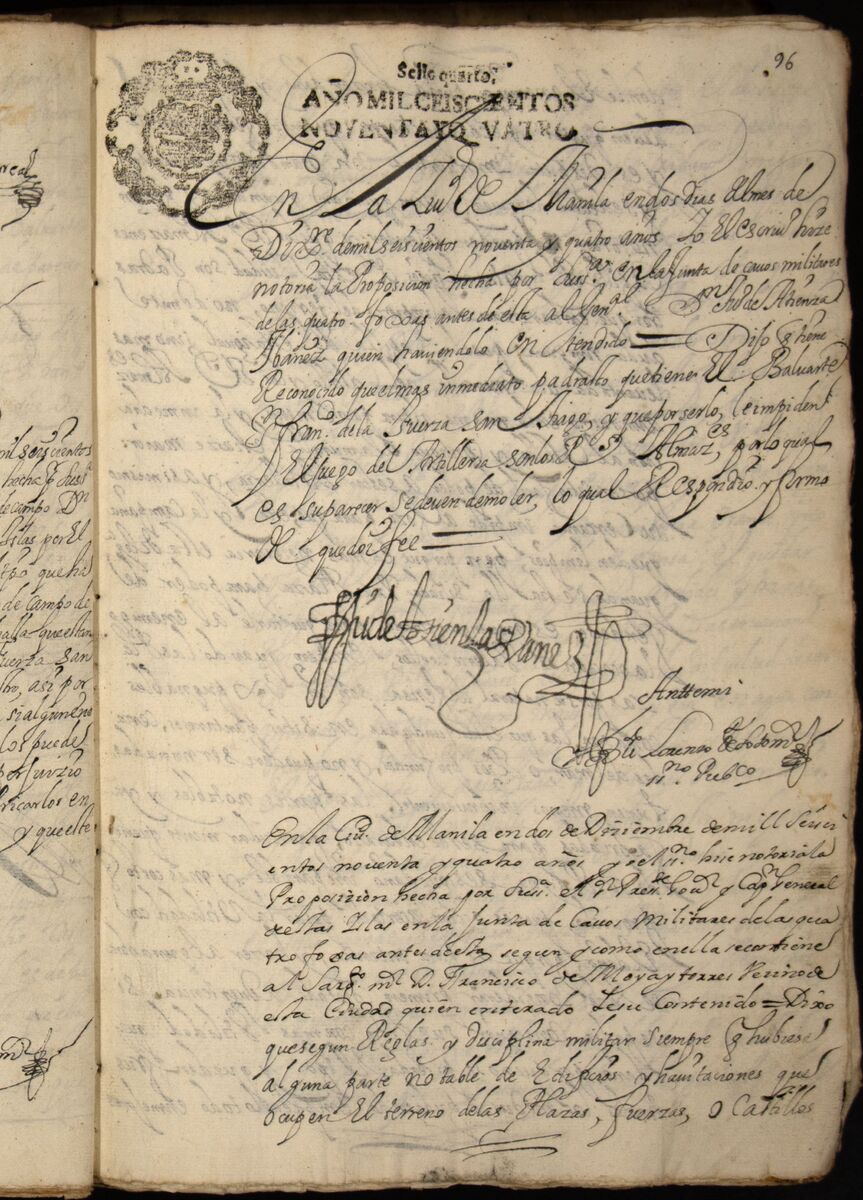 96
Sello quarto,
AÑO MIL CEISCIENTOS
NOVENTA YQ VATRO
En La Ciud de Manila en dos dias del mes de
Dizre de mil seiscientos noventa y quatro años Yo El escriuo hize
notoria la Proposicion hecha por Su ssa en la Junta de cauos militares
de las quatro foxas antes de esta al Genal Dn Juo de Atienza
Ibañez quien haviendolo entendido = Dijo q tiene
Reconocido que el mas inmediato padrasto que tiene El Baluarte
Sn Franco de la fuerza Santhiago, y que por serlo, le impiden
El juego del Artilleria son los Rs Almazes, por lo qual
es su parecer se deuen demoler, lo qual Respondio y firmo
de que doi fee =
Juo de Atienza Ybanez
Anttemi
Lorenzo
no Pubco
En la Ciud de Manila en dos de Diziembre de mill Seisci
entos noventa y quatro años yo el sno hise notoria la
Proposizion hecha por Su ssa el Sr Presde Gour y Capn General
de estas Islas en la Junta de Cauos Militares de las qua
tro foxas antes desta segun y como en ella se contiene
al Sargto mr D. Francisco de Moya y torres Vecino de
esta Ciudad quien enterado de su Contenido = Dixo
que segun Reglas y disciplina militar siempre q hubiese
alguna parte notable de Edificios y hauitaciones que
ocupen El terreno de las Plazas, fuerzas, o Castillos
real
mil seiscientos
hecha p Su ssa
de campo Dn
por El
que ha
de campo de
fuerza san
asi por
si alguno
los puede
perjuizio
ricarlos en
y que este